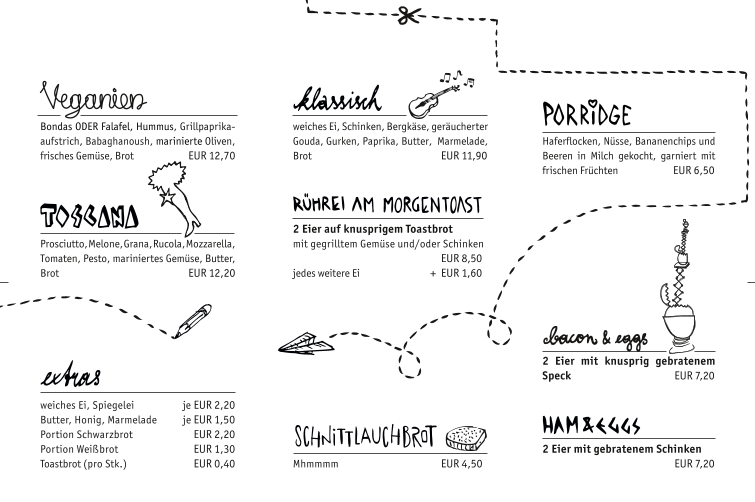 Veganien
Bondas ODER Falafel, Hummus, Grillpaprika-
aufstrich, Babaghanoush, marinierte Oliven,
frisches Gemüse, Brot EUR 12,70
TOSCANA
Prosciutto, Melone, Grana, Rucola, Mozzarella,
Tomaten, Pesto, mariniertes Gemüse, Butter,
Brot EUR 12,20
extras
weiches Ei, Spiegelei je EUR 2,20
Butter, Honig, Marmelade je EUR 1,50
Portion Schwarzbrot EUR 2,20
Portion Weißbrot EUR 1,30
Toastbrot (pro Stk.) EUR 0,40
klassisch
weiches Ei, Schinken, Bergkäse, geräucherter
Gouda, Gurken, Paprika, Butter, Marmelade,
Brot EUR 11,90
RÜHREI AM MORGENTOAST
2 Eier auf knusprigem Toastbrot
mit gegrilltem Gemüse und/oder Schinken
EUR 8,50
jedes weitere Ei + EUR 1,60
SCHNiTTLAUCHBROT
Mhmmmm EUR 4,50
PORRiDGE
Haferflocken, Nüsse, Bananenchips und
Beeren in Milch gekocht, garniert mit
frischen Früchten EUR 6,50
bacon & eggs
2 Eier mit knusprig gebratenem
Speck EUR 7,20
HAM & EGGS
2 Eier mit gebratenem Schinken
EUR 7,20